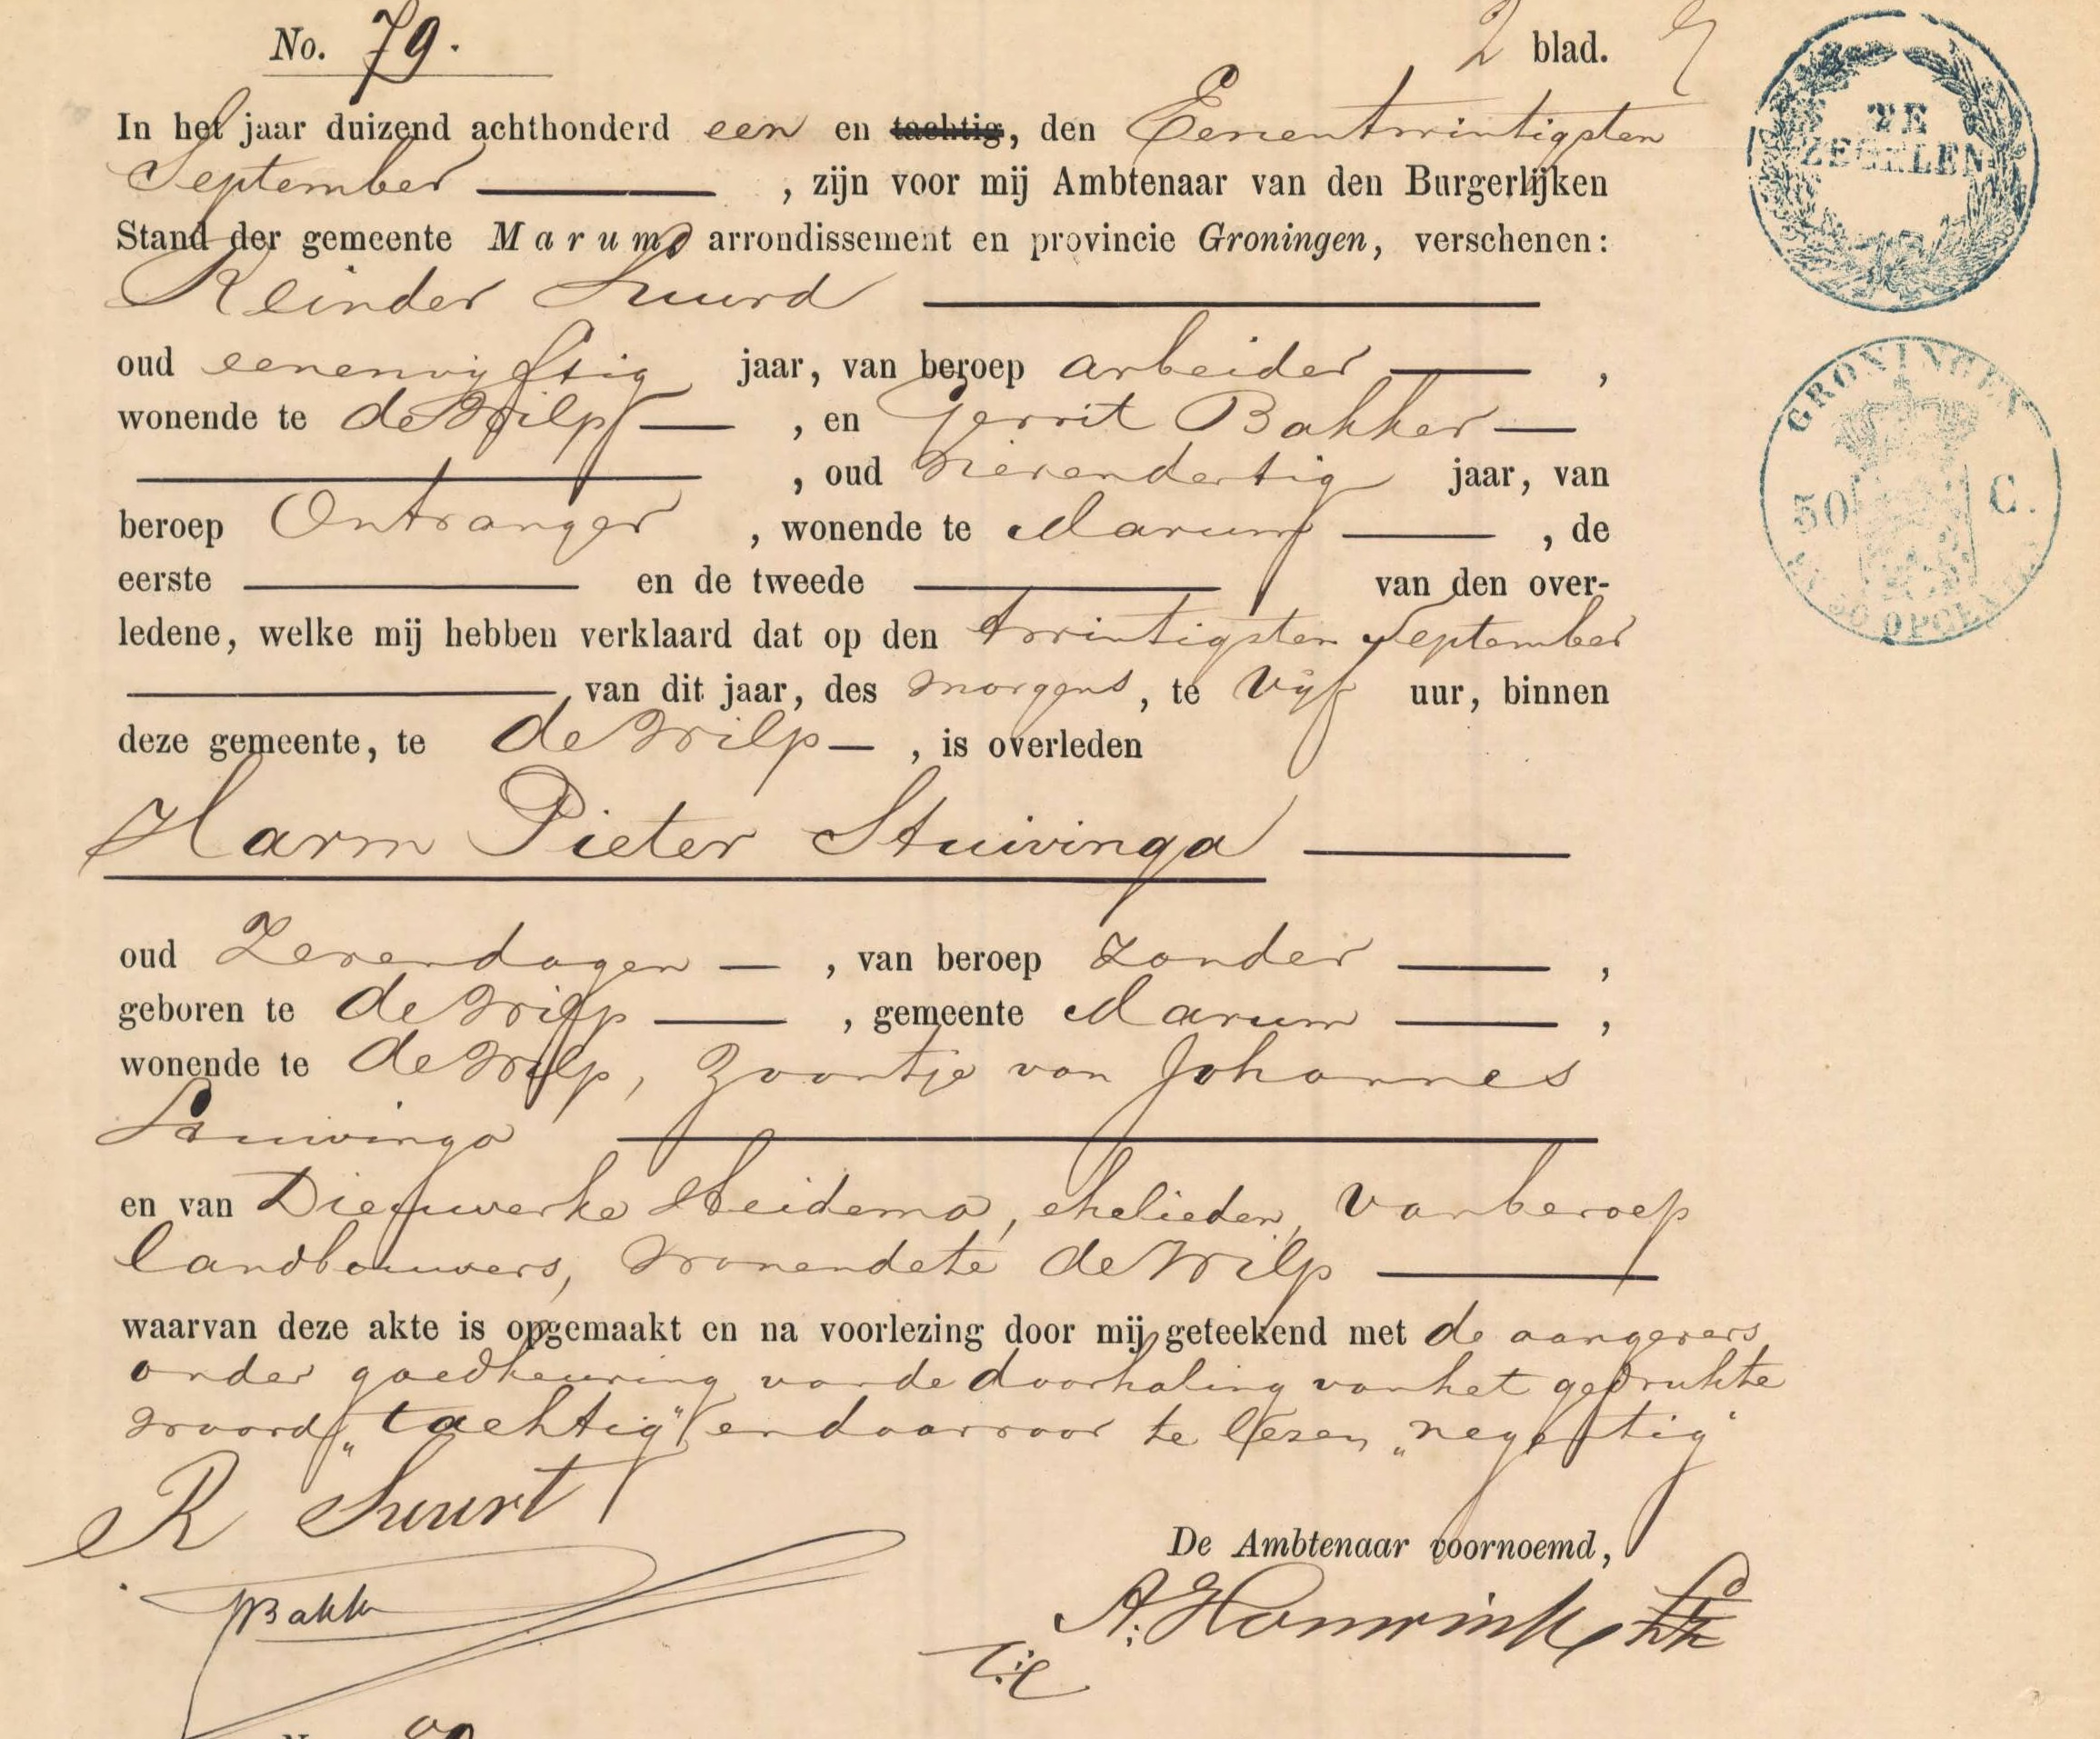 No. 79.
2 blad.
TE
ZEGELEN
In het jaar duizend achthonderd een en tachtig, den Eenentwintigsten
September , zijn voor mij Ambtenaar van den Burgerlijken
Stand der gemeente Marum, arrondissement en provincie Groningen, verschenen:
Reinder Suurd
GRONINGEN
50 C.
oud eenenvijftig jaar, van beroep arbeider ,
wonende te de Wilp , en Gerrit Bakker
, oud vierendertig jaar, van
beroep Ontvanger , wonende te Marum , de
eerste en de tweede van den over-
ledene, welke mij hebben verklaard dat op den twintigsten September
van dit jaar, des morgens, te Vijf uur, binnen
deze gemeente, te de Wilp , is overleden
Harm Pieter Stuivinga
oud Zevendagen , van beroep zonder ,
geboren te de Wilp , gemeente Marum ,
wonende te de Wilp, Zoontje van Johannes
Stuivinga
en van Dieuwerke Heidema, echelieden, van beroep
landbouwers, wonende te de Wilp
waarvan deze akte is opgemaakt en na voorlezing door mij geteekend met de aangevers
onder goedkeuring van de doorhaling van het gedrukte
woord „tachtig" en daarvoor te lezen „negentig"
R Suurt
De Ambtenaar voornoemd,
Bakker